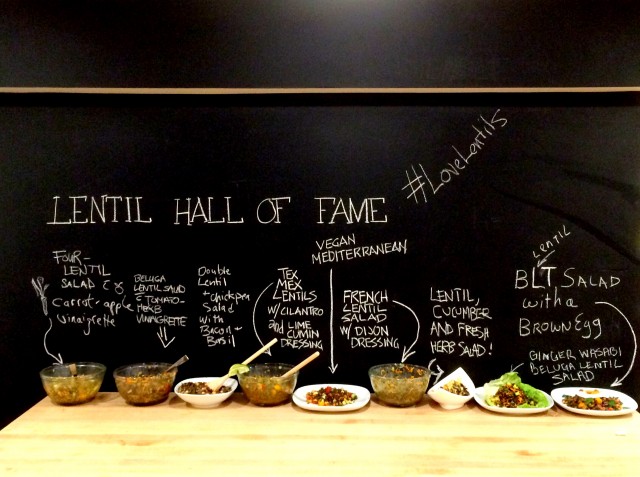 #LoveLentils
LENTIL HALL OF FAME
FOUR-
LENTIL
SALAD C
Carrot-apple
Vinaigrette
BELUGA
LENTIL SALAD
C TOMATO-
HERB
VINAIGRETTE
Double
Lentil
+ Chickpea
Salad
with
Bacon +
Basil
TEX
MEX
LENTILS
W/ CILANTRO
and LIME
CUMIN
DRESSING
VEGAN
MEDITERRANEAN
FRENCH
LENTIL
SALAD
W/ DIJON
DRESSING
LENTIL,
CUCUMBER
AND FRESH
HERB SALAD!
LENTIL
BLT SALAD
with a
BROWN Egg
GINGER WASABI
BELUGA LENTIL
SALAD